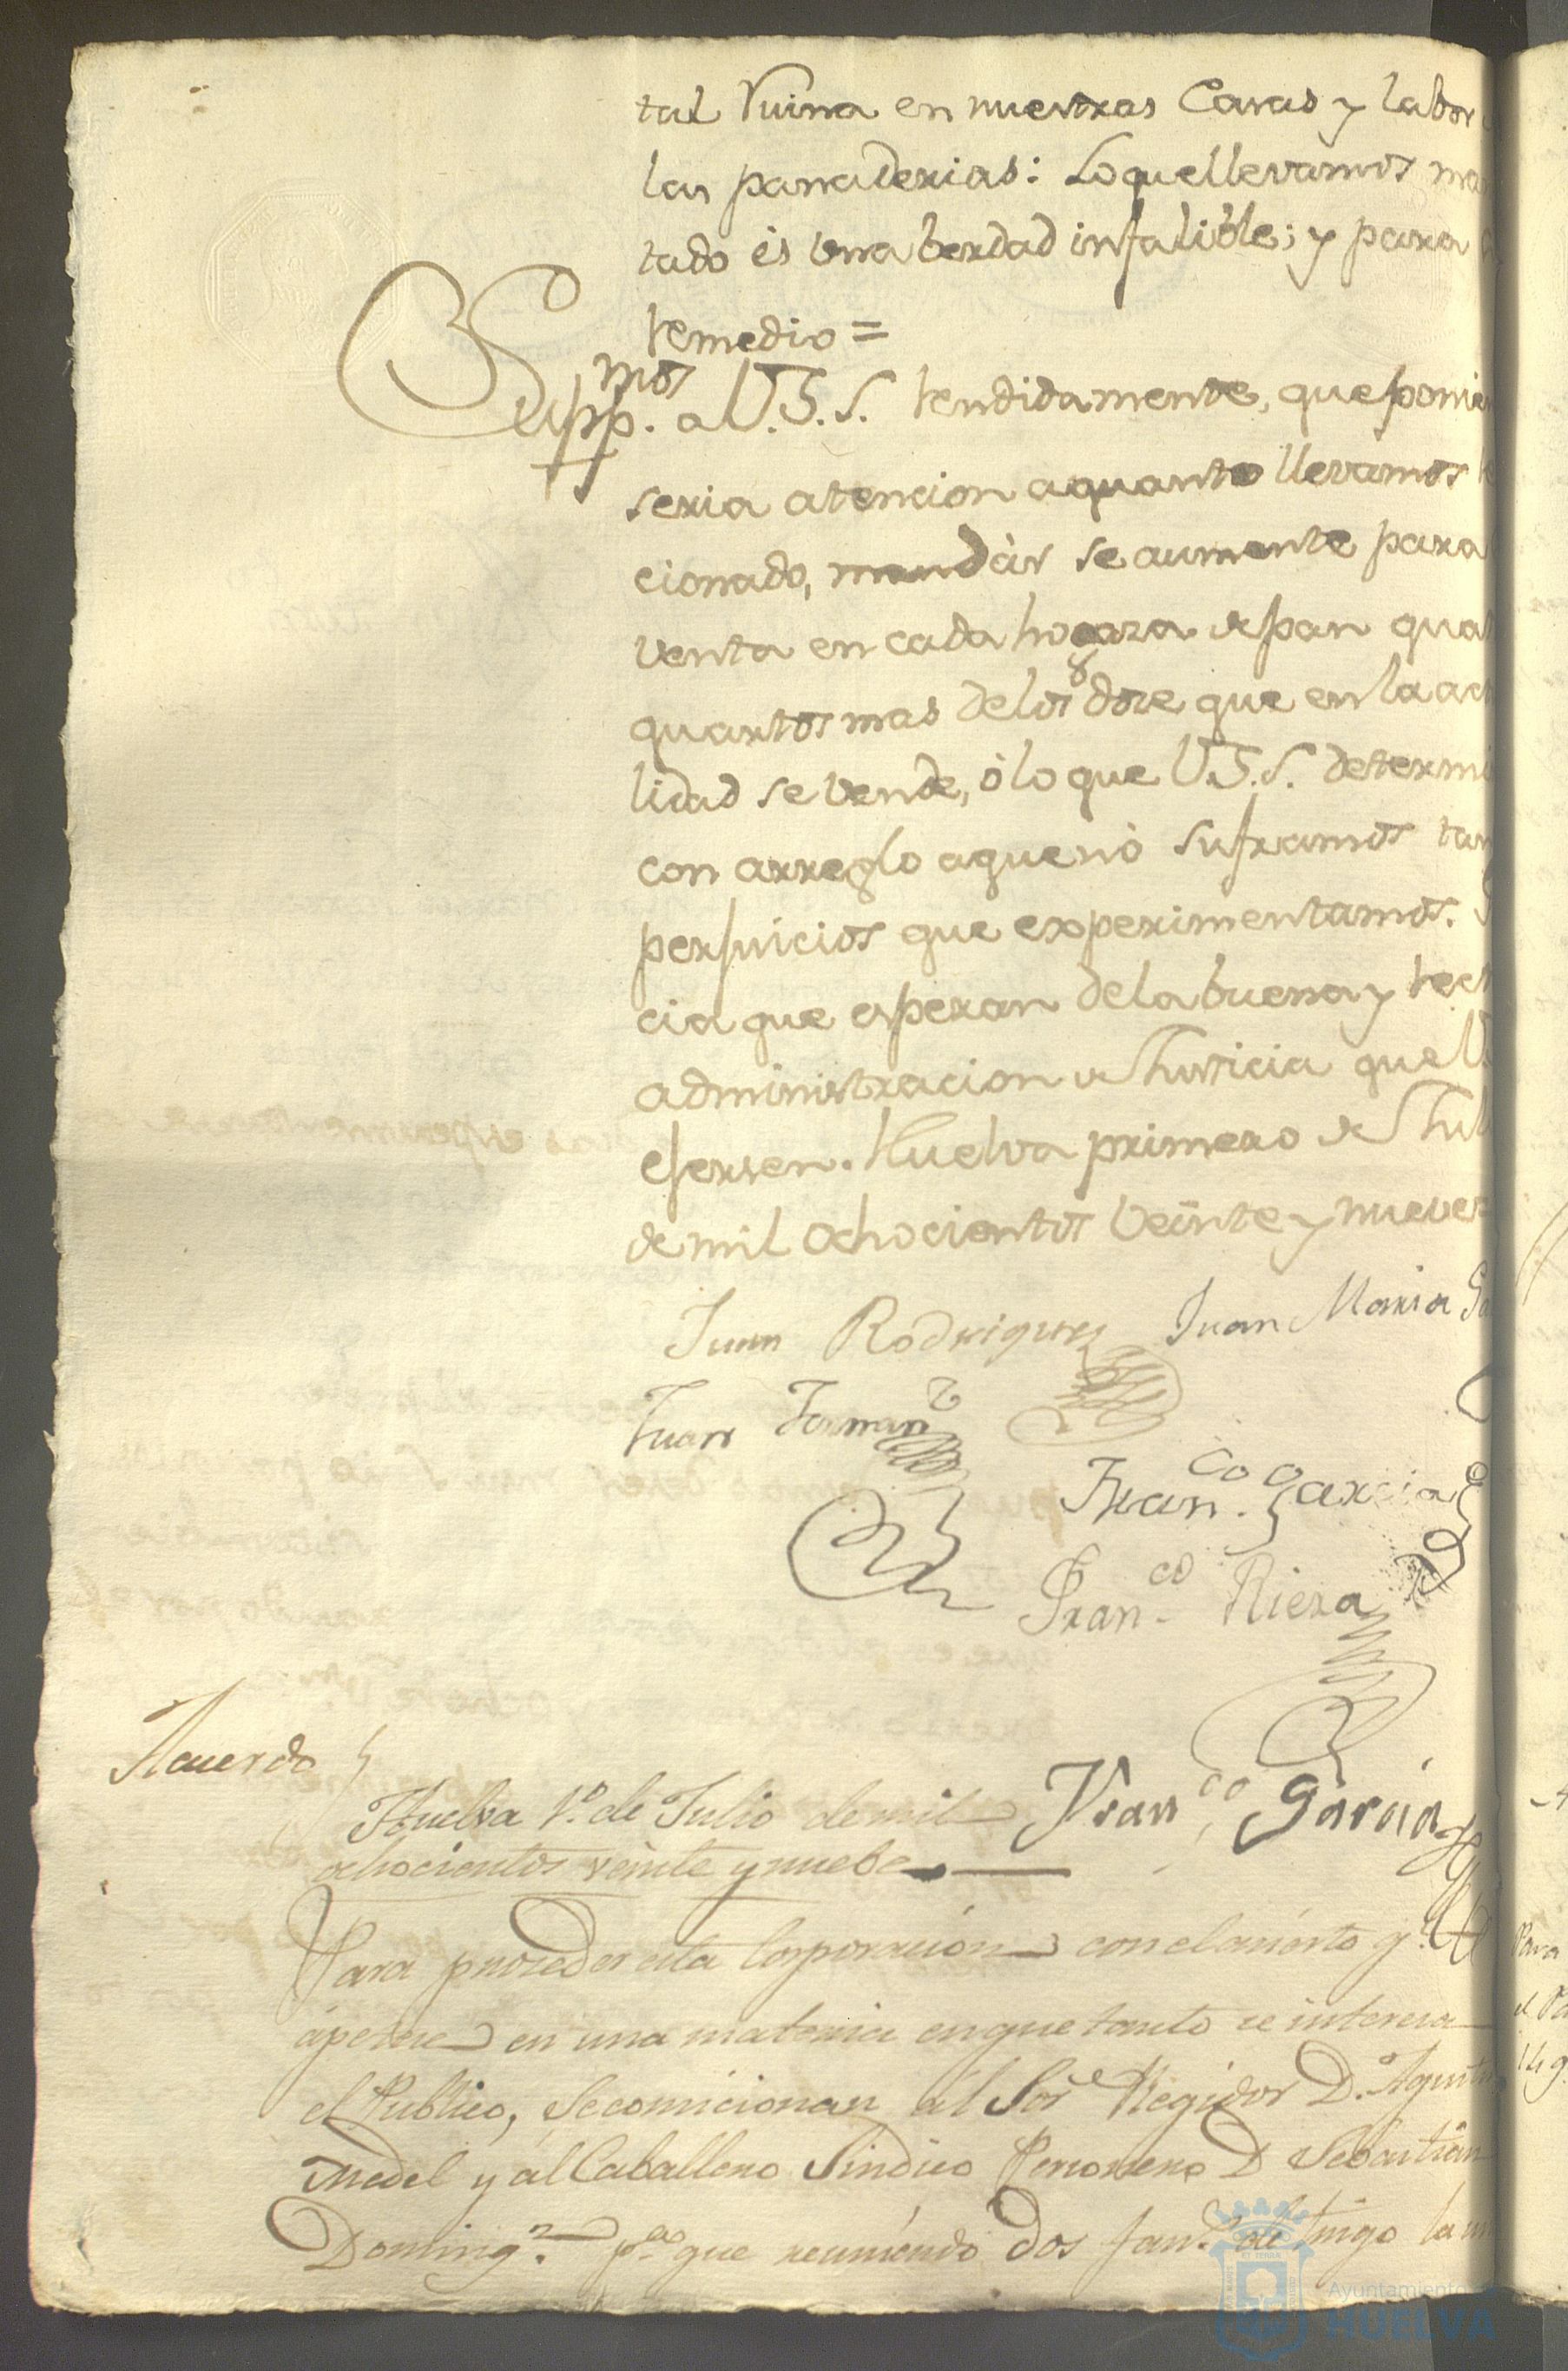 tal Ruina en nuestras Casas y labor
las panaderias: Lo que llevamos ma
tado és una berdad infalible; y para
remedio =
Supp.mos a V.S.S. rendidamente, que ponien
seria atencion a quanto llevamos
cionado, mandàr se aumente para
venta en cada hogaza de pan quat
quartos mas de los doze que en la ac
lidad se vende, ó lo que V.S.S. determi
con arreglo a que nó suframos tan
perjuicios que experimentamos.
cia que esperan de la buena y rect
administracion de Justicia que V.
ejersen. Huelva primero de Jul
de mil ochocientos veinte y nueve=
Juan Rodriguez Juan Maria
Juan Fernanz
Fran.co Garcia
Fran.co Riera
Acuerdo
Fran.co Garcia
Huelva 1.º de Julio de mil
ochocientos veinte y nuebe
Para proceder esta Corporación con el acierto q.e
apetece en una materia en que tanto se interesa
el Publico, se comicionan al Sor Regidor D. Agustin
Medel y al Caballero Sindico Personero D Sebastian
Doming.z p.a que reuniendo dos fan.s de trigo la
Para
Ayuntamiento
HUELVA